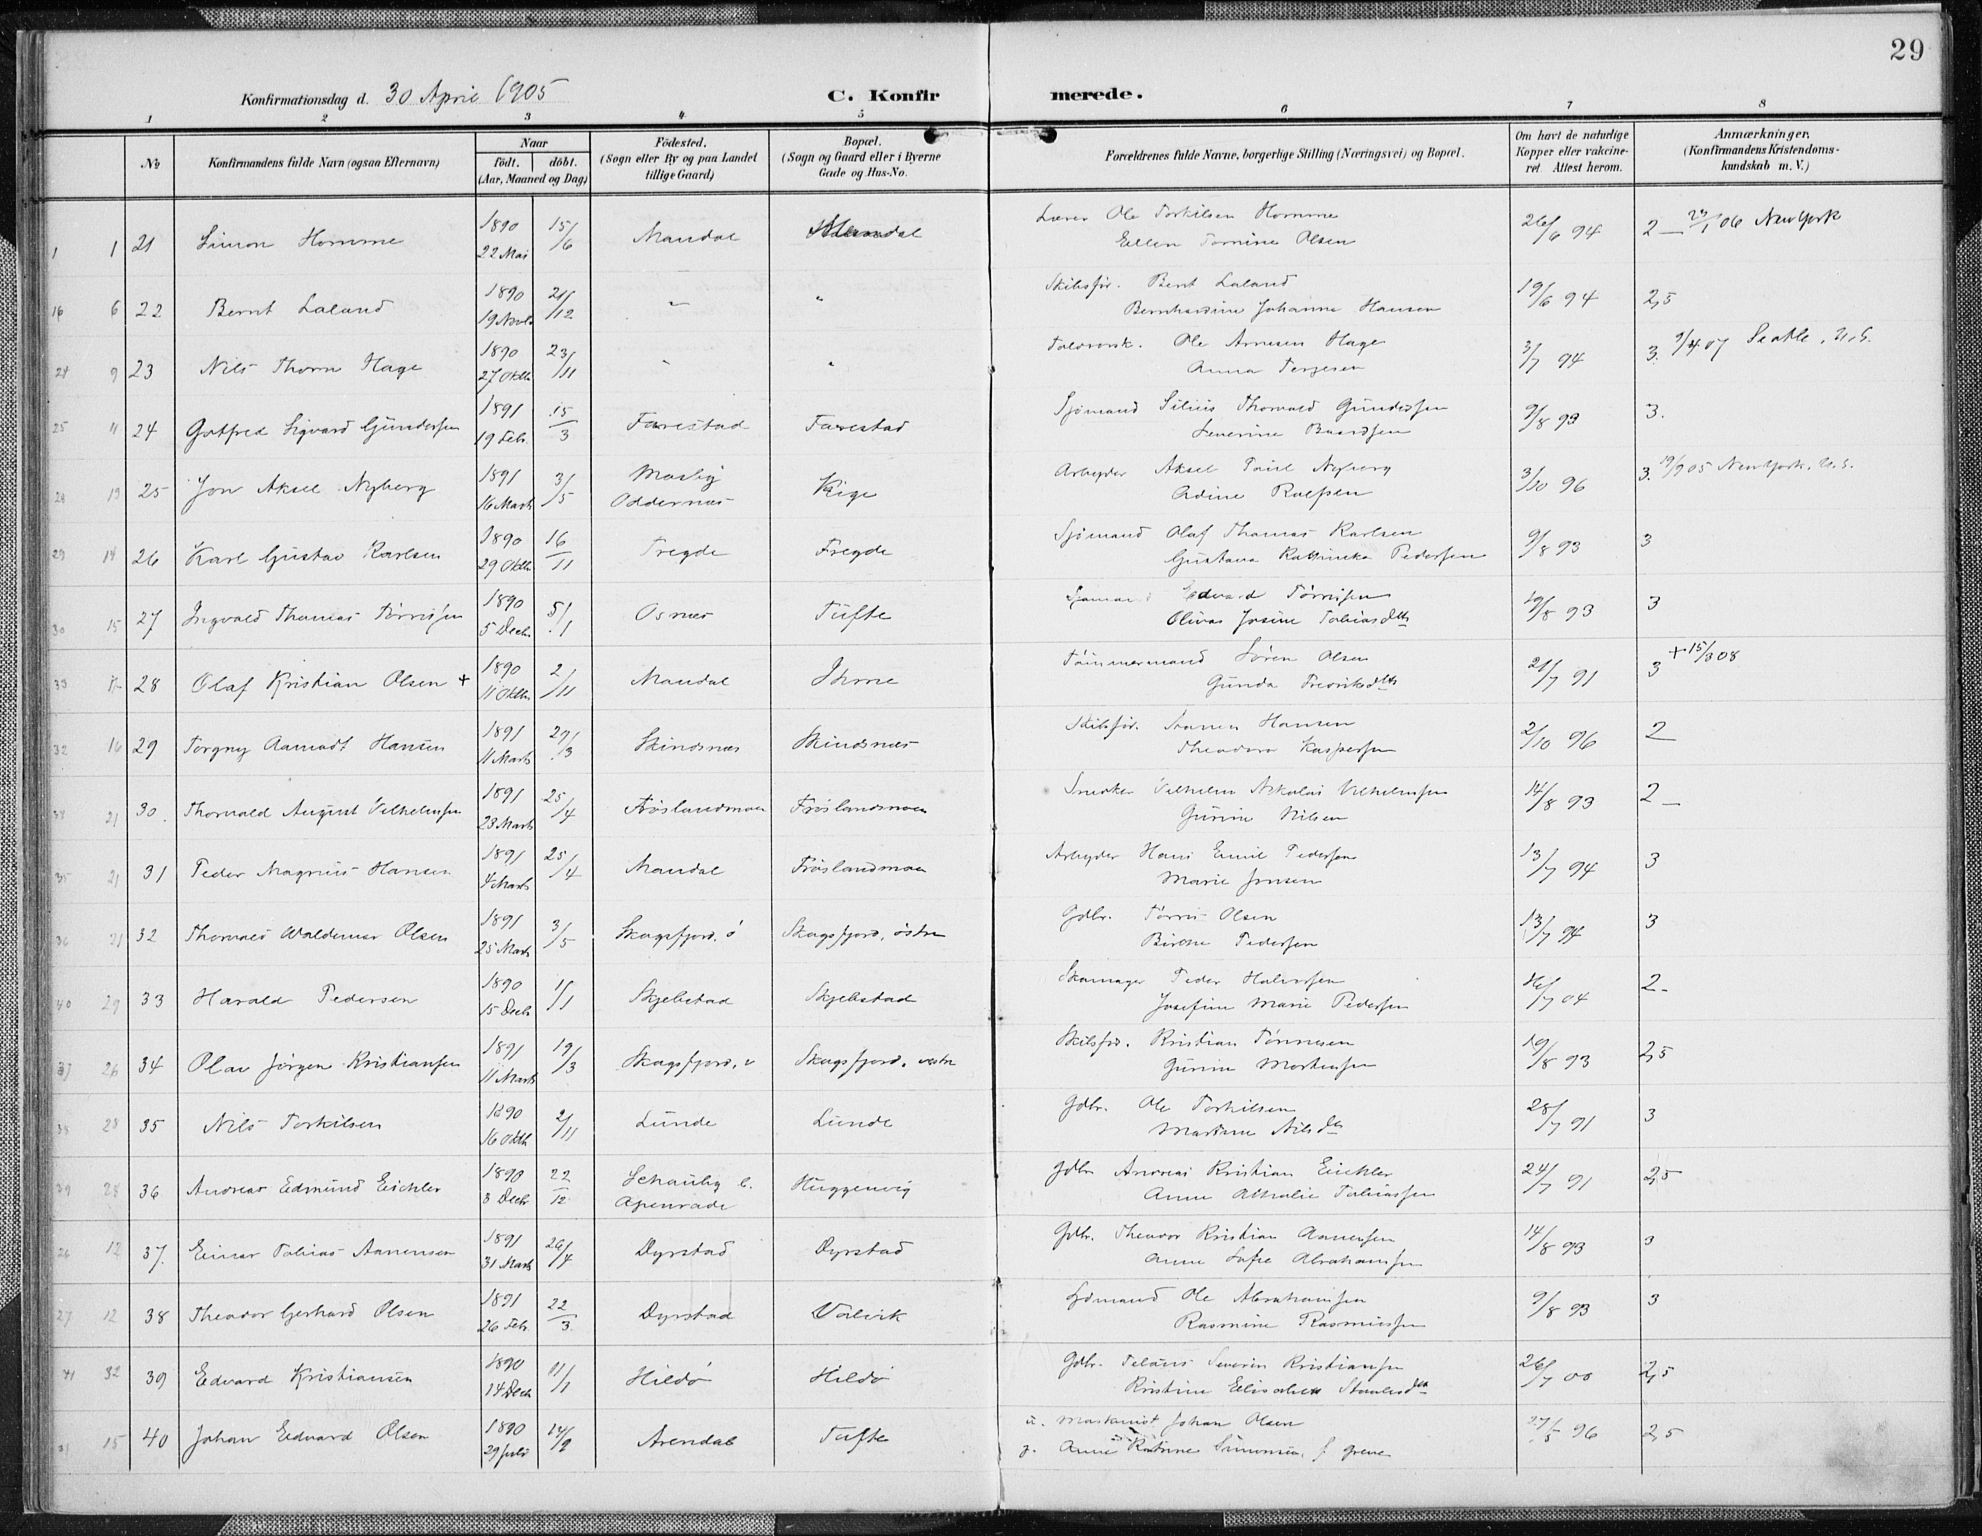 29
Konfirmationsdag d. 30 April 1905
C. Konfirmerede.
1 2 3 4 5 6 7 8
No
Konfirmandens fulde Navn (ogsaa Efternavn)
Naar
födt. döbt.
(Aar, Maaned og Dag)
Födested.
(Sogn eller By og paa Landet
tillige Gaard)
Bopæl.
(Sogn og Gaard eller i Byerne
Gade og Hus-No.
Forældrenes fulde Navne, borgerlige Stilling (Næringsvei) og Bopæl.
Om havt de naturlige
Kopper eller vakcine-
ret. Attest herom.
Anmærkninger.
(Konfirmandens Kristendoms-
kundskab m. V.)
1 1 21 Simon Homme 1890 22 Mai 15/6 Mandal Mandal Lærer Ole Torkilsen Homme 26/6 94 2- 23/1 06 New York
Ellen Tomine Olsen
16 6 22 Bernt Laland 1890 19 Novb 21/12 " " Skibsfør. Bent Laland 19/6 94 2,5
Bernhardine Johanne Hansen
24 9 23 Nils Thorn Hage 1890 27 Oktb 23/11 " " Toldvorsk. Ole Arnesen Hage 3/7 94 3. 9/4 07 Seatle, U.S.
Anna Terjesen
25 11 24 Gotfred Sigvard Gundersen 1891 19 Feb. 15/3 Farestad Farestad Sjömand Silius Thorvald Gundersen 9/8 93 3.
Severine Baardsen
28 13 25 Jon Aksel Nyberg 1891 16 Marts 3/5 Mosby Oddernes Kige Arbeyder Aksel Emil Nyberg 3/10 96 3. 19/9 05 New York, U.S.
Adine Roelfsen
29 14 26 Karl Gustav Karlsen 1890 29 Oktb 16/11 Tregde Tregde Sjömand Olaf Thomas Karlsen 9/8 93 3
Gustava Kathinka Pedersen
30 15 27 Ingvald Thomas Tørrisen 1890 5 Decb 5/1 Osnes Tufte Sjømand Edvard Tørrisen 19/8 93 3
Olivas Josine Tobiasdtr
33 28 Olaf Kristian Olsen + 1890 11 Oktb 2/11 Mandal Ihme Tømmermand Søren Olsen 21/7 91 3 + 15/3 08
Gunda Fredriksdtr
32 16 29 Torgny Aamodt Hansen 1891 11 Marts 29/3 Skindsnes Skindsnes Skibsfør. Hansen 2/10 96 2
Theodora Kaspersen
21 30. Thorvald August Vilhelmsen 1891 23 Marts 25/4 Frøslandsmoen Frøslandsmoen Snedker Vilhelm Nikolai Vilhelmsen 14/8 93 2-
Gurine Nilsen
35 21 31 Peder Magnus Hansen 1891 4 Marts 25/4 Mandal Frøslandsmoen Arbeyder Hans Emil Pedersen 13/7 94 3
Marie Jensen
36 21 32 Thorvald Waldemar Olsen 1891 25 Marts 3/5 Skogsfjord, ø Skogsfjord, østre Gdbr. Tørris Olsen 13/7 94 3
Birthe Pedersen
40 29 33 Harald Pedersen 1890 15 Decb 1/1 Skjebstad Skjebstad Skomager Peder Halvorsen 16/7 04 2-
Josefine Marie Pedersen
37 26 34 Olav Jørgen Kristiansen 1891 11 Marts 19/3 Skogsfjord, v Skogsfjord, vestre Skibsfør. Kristian Tønnesen 19/8 93 2,5
Gurine Mortensen
38 28 35 Nils Torkilsen 1890 16 Oktb 2/11 Lunde Lunde Gdbr. Ole Torkilsen 28/7 91 3
Martine Nilsdtr
39 28 36 Andreas Edmund Eichler 1890 3 Decb 22/12 Schauby b. Apenrade Huggenvig Gdbr Andreas Kristian Eichler 24/7 91 2,5
Anne Athalie Tobiassen
26 12 37. Einar Tobias Aanensen 1891 31 Marts 26/4 Dyrstad Dyrstad Gdbr. Theodor Kristian Aanensen 14/8 93 3
Anne Sofie Abrahamsen
27 12 38 Theodor Gerhard Olsen 1891 26 Feb. 22/3. Dyrstad Valvik Sjømand Ole Abrahamsen 9/8 93 3
Rasmine Rasmussen
41 32 39 Edvard Kristiansen 1890 14 Decb 11/1 Hildø Hildø Gdbr. Severin Kristiansen 26/7 00 2,5
Kristine Elisabeth
31 15 40 Johan Edvard Olsen 1890 29 Juli 14/9 Arendal Tufte u. Maskinist Johan Olsen 27/5 96 2,5
g. Anne Katrine Simonsen, f. Greve